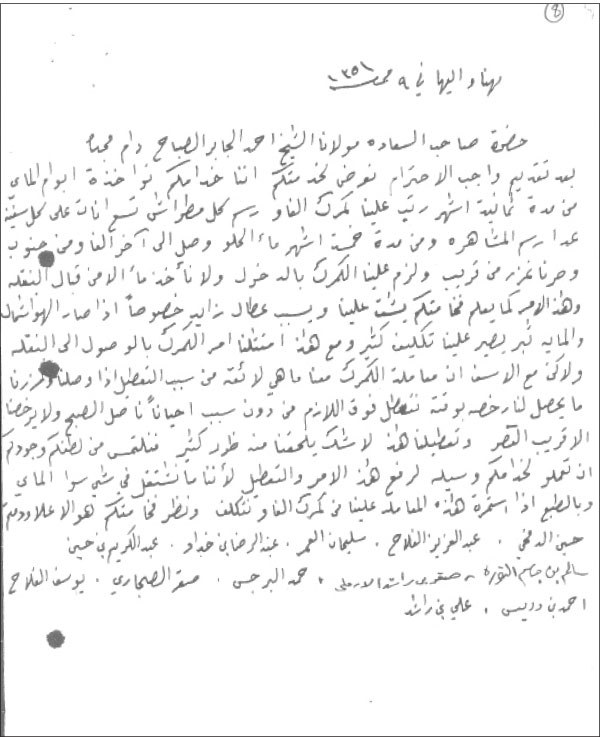 8
منا واليها في ٩ محرم ١٣٥١
حضرة صاحب السعاده مولانا الشيخ احمد الجابر الصباح دام مجده
بعد تقديم واجب الاحترام نعرض لخدمتكم اننا خدامكم نواخذة ابوام الماي
من مدة ثمانية اشهر رتب علينا كمرك الفاو رسم كل مطراش تسع انات على كل سفينة
عدا رسم المشاهره ومن مدة خمسة اشهر ماء الحلو وصل الى آخر الفاو ومن جنوب
وصرنا نمزر من قريب ولزم علينا الكمرك بالدخول ولا نأخذ ماء الا من قبال النقله
وهذا الامر كما يعلم فخامتكم يشق علينا ويسبب عطال زايد خصوصاً اذا صار الهوا شمال
والمايه ثبر يصير علينا تكليف كثير ومع هذا امتثلنا امر الكمرك بالوصول الى النقله
ولاكن مع الاسف ان معاملة الكمرك معنا ما هي لائقه من سبب التعطيل اذا وصلنا ومزرنا
ما يحصل لنا رخصه بوقته نتعطل فوق اللازم من دون سبب احياناً ناصل الصبح ولا يرخصنا
الا قريب العصر وتعطيلنا هذا لا شك يلحقنا منه ضرر كثير فنلتمس من لطفكم وجودكم
ان تعملو لخدامكم وسيله لرفع هذا الامر والتعطيل لأننا ما نشتغل في شي سوا الماي
وبالطبع اذا استمرة هذه المعامله علينا من كمرك الفاو نتكلف ونظر فخامتكم هو الاعلا ودمتم
حسين الدمخي . عبدالعزيز الفلاح . سليمان العمر . عبدالرضا بن خداد . عبدالكريم بن حسين
سالم بن جاسم صقر بن راشد . حمد البرجس . صقر . يوسف الفلاح
احمد بن . علي بن راشد